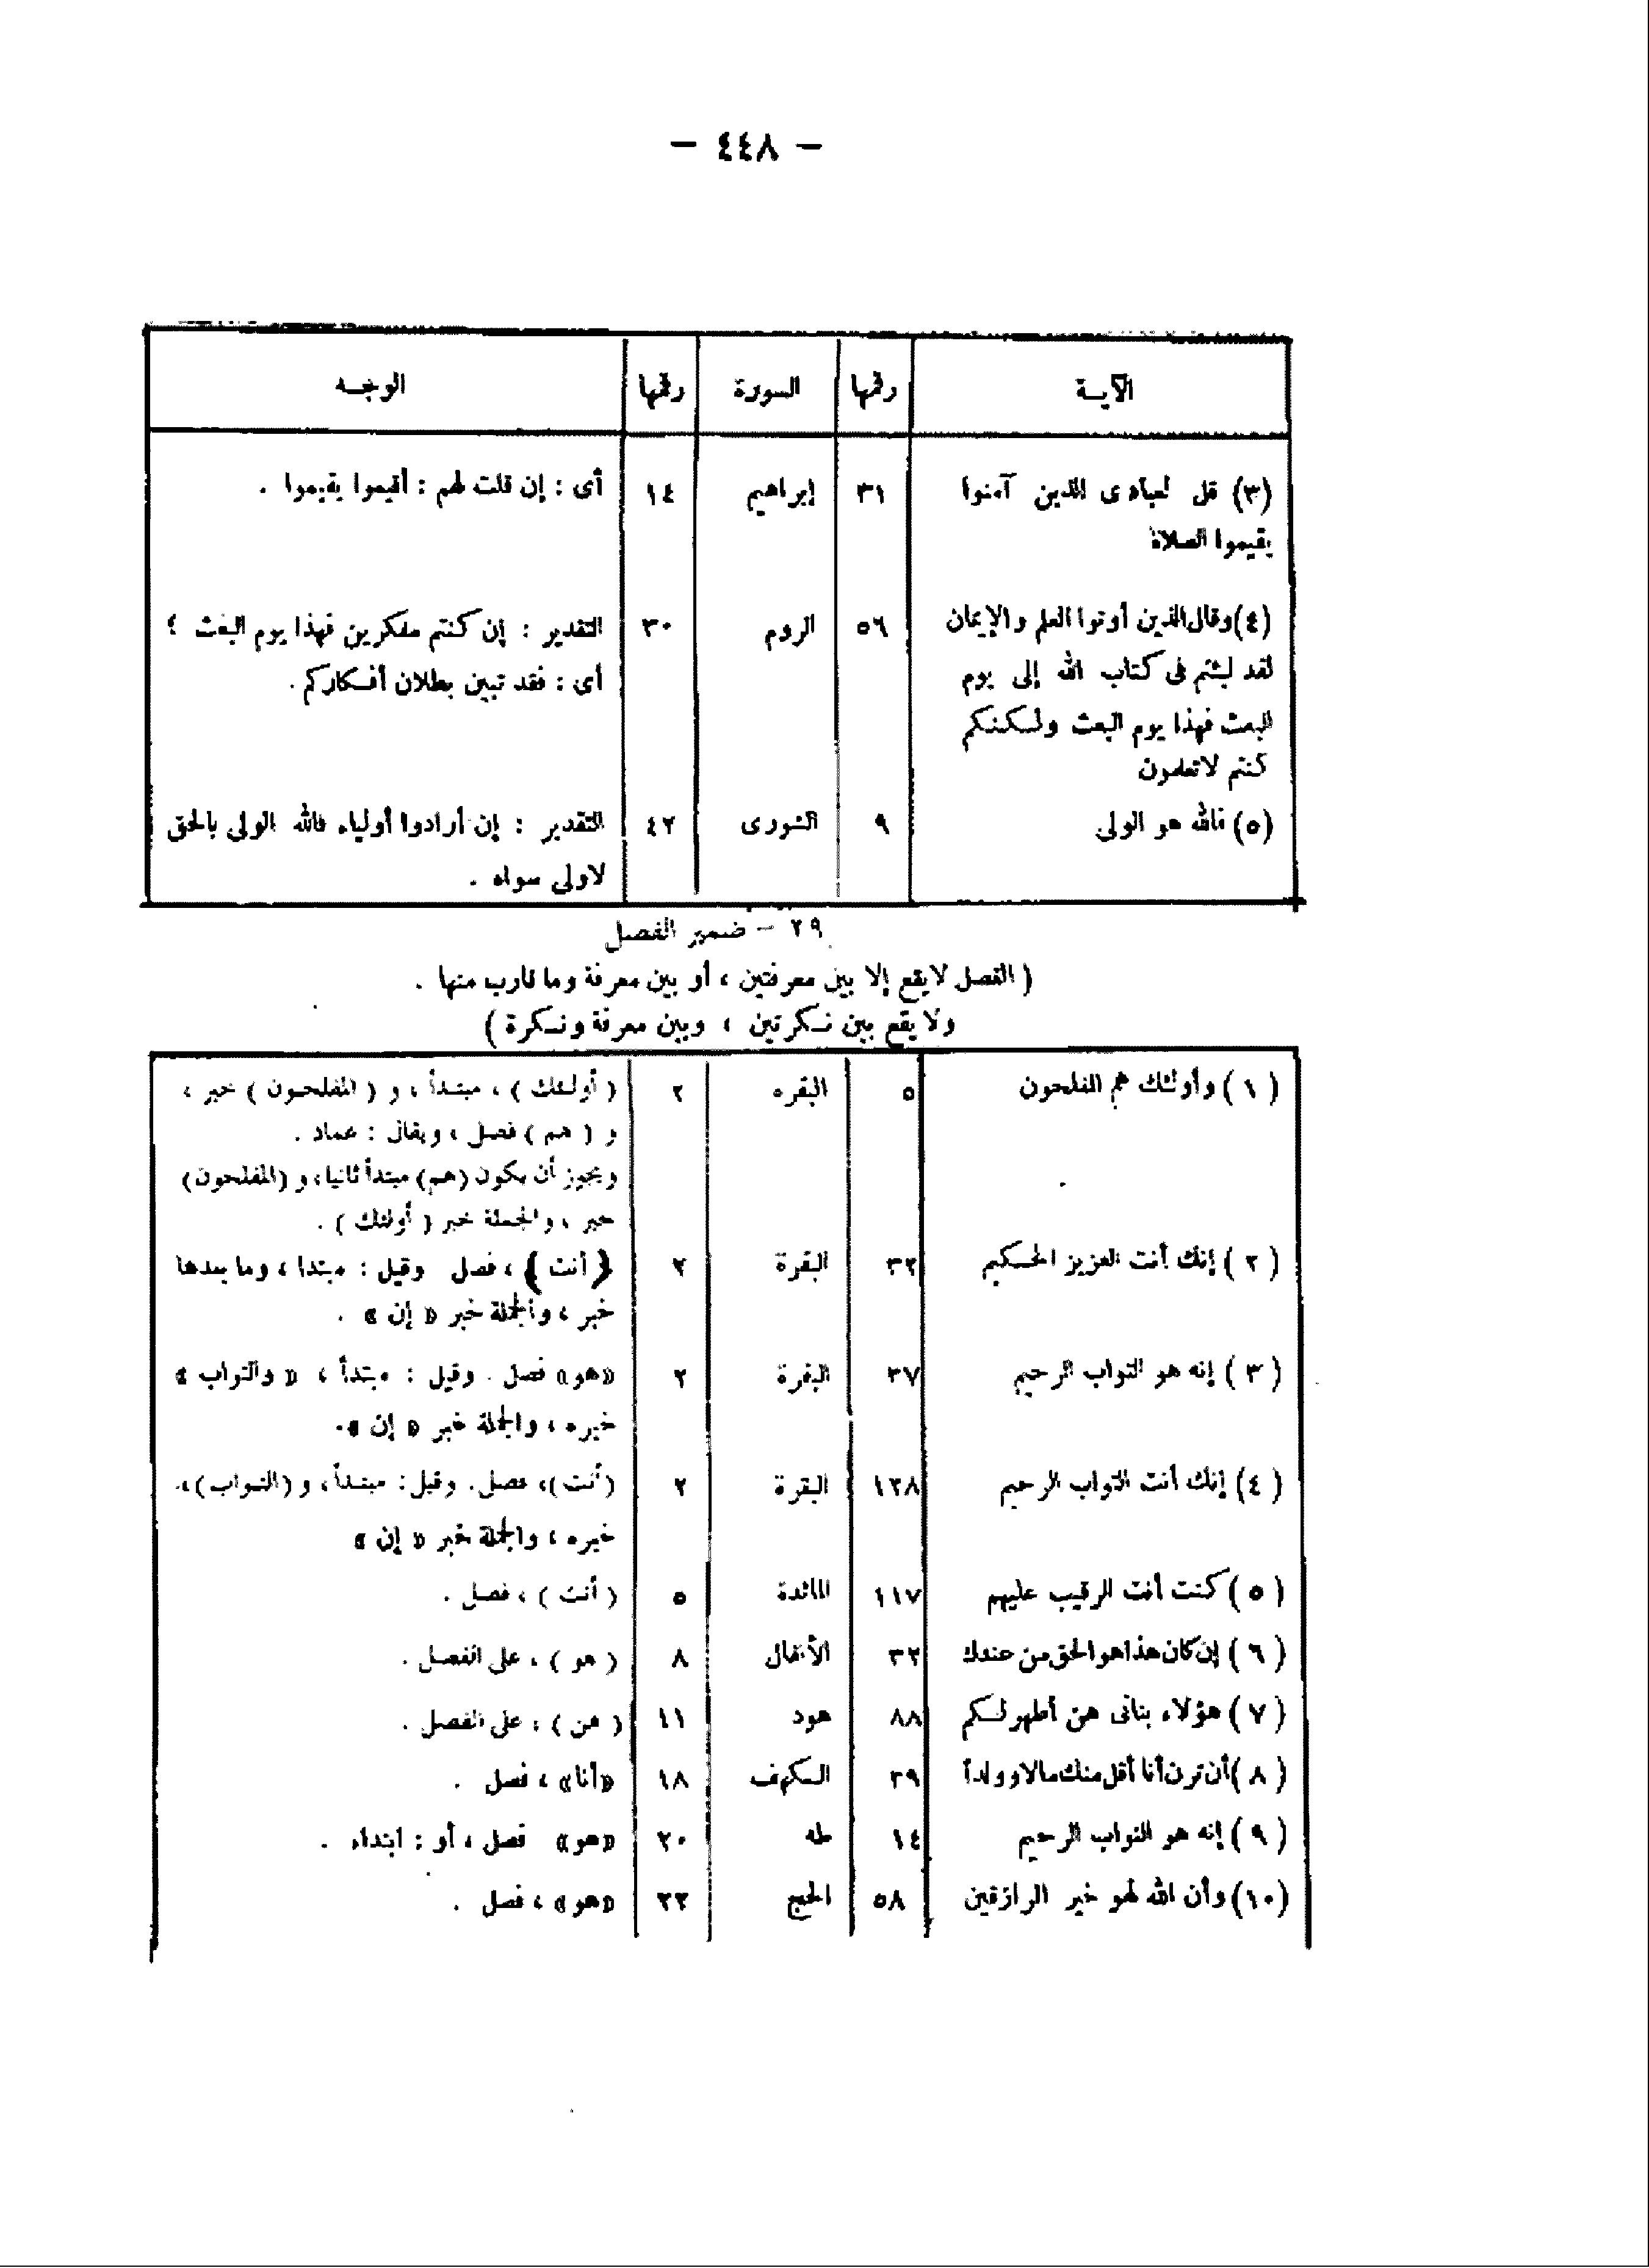 — ٤٤٨ —
الآيـة | رقمها | السورة | رقمها | الوجـه
(٣) قل لعبادى الذين آمنوا | ٣١ | إبراهيم | ١٤ | أى : إن قلت لهم : أقيموا يقيموا .
يقيموا الصلاة
(٤) وقال الذين أوتوا العلم والإيمان | ٥٦ | الروم | ٣٠ | التقدير : إن كنتم مفكرين فهذا يوم البعث ؛
لقد لبثتم فى كتاب الله إلى يوم | أى : فقد تبين بطلان أفكاركم .
البعث فهذا يوم البعث ولكنكم
كنتم لاتعلمون
(٥) فالله هو الولى | ٩ | الشورى | ٤٢ | التقدير : إن أرادوا أولياء فالله الولى بالحق
لاولى سواه .
٢٩ – ضمير الفصل
( الفصل لايقع إلا بين معرفتين ، أو بين معرفة وما قارب منها .
ولا يقع بين نكرتين ، وبين معرفة ونكرة )
( ١ ) وأولئك هم المفلحون | ٥ | البقره | ٢ | ( أولئك ) ، مبتدأ ، و ( المفلحون ) خبر ،
و ( هم ) فصل ، ويقال : عماد .
ويجوز أن يكون (هم) مبتدأ ثانيا ، و (المفلحون)
خبر ، والجملة خبر ( أولئك ) .
( ٢ ) إنك أنت العزيز الحكيم | ٣٢ | البقرة | ٢ | ( أنت ) ، فصل وقيل : مبتدا ، وما بعدها
خبر ، والجملة خبر « إن » .
( ٣ ) إنه هو التواب الرحيم | ٣٧ | البقرة | ٢ | «هو» فصل . وقيل : مبتدأ ، « والتواب »
خبره ، والجملة خبر « إن » .
( ٤ ) إنك أنت التواب الرحيم | ١٢٨ | البقرة | ٢ | (أنت) ، فصل . وقيل : مبتدأ ، و (التواب) ،
خبره ، والجملة خبر « إن »
( ٥ ) كنت أنت الرقيب عليهم | ١١٧ | المائدة | ٥ | ( أنت ) ، فصل .
( ٦ ) إن كان هذا هو الحق من عندك | ٣٢ | الأنفال | ٨ | ( هو ) ، على الفصل .
( ٧ ) هؤلاء بناتى هن أطهر لكم | ٨٨ | هود | ١١ | ( هن ) ، على الفصل .
( ٨ ) أن ترن أنا أقل منك مالا وولداً | ٣٩ | الكهف | ١٨ | «أنا» ، فصل .
( ٩ ) إنه هو التواب الرحيم | ١٤ | طه | ٢٠ | «هو» فصل ، أو : ابتداء .
(١٠) وأن الله لهو خير الرازقين | ٥٨ | الحج | ٢٢ | «هو» ، فصل .